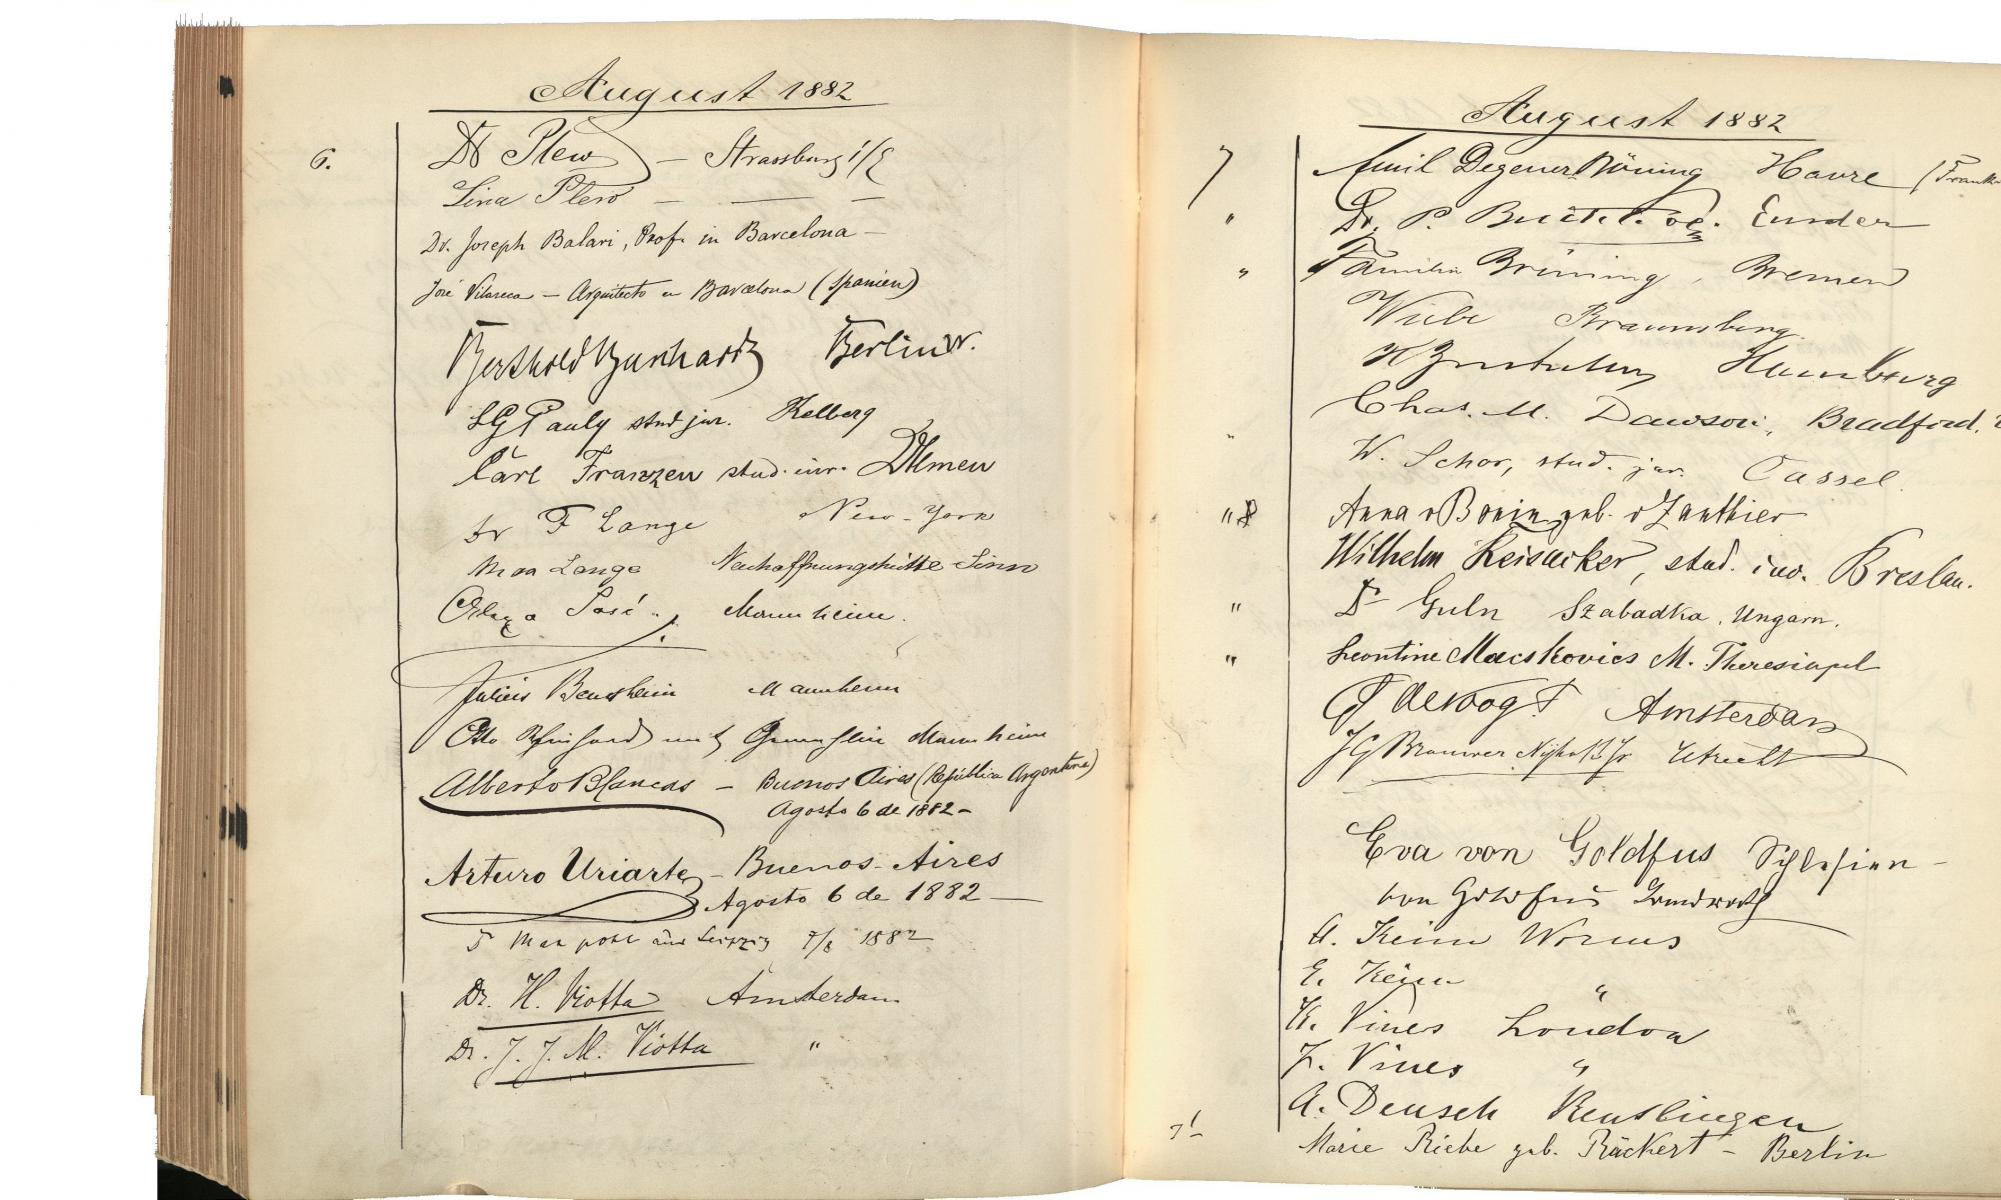 August 1882
6. Dr Plew — Strassburg i/E
Lina Plew — — —
Dr. Joseph Balari, Prof. in Barcelona —
José Vilaseca — Arquitecto en Barcelona (Spanien)
Berthold Burkhardt Berlin W.
Pauly stud jur. Kolberg
Carl Franzen stud. iur. Dülmen
Dr F Lange New-York
Max Lange Neuhoffnungshütte Sinn
José Mannheim.
Julius Bensheim Mannheim
Otto Mannheim
Alberto Blancas — Buenos Aires (República Argentina)
Agosto 6 de 1882 —
Arturo Uriarte — Buenos-Aires
Agosto 6 de 1882 —
Max Pohl aus Leipzig 7/8 1882
Dr. H. Viotta Amsterdam
Dr. J. J. M. Viotta "
August 1882
7 Emil Degener Böning Havre
" Dr. P. Emden
" Familie Brüning, Bremen
Wiebe Braunsberg
Hamburg
" Chas. M. Dawson, Bradford.
W. Schor, stud. jur. Cassel.
" Anna v Bonin geb. v Zanthier
Wilhelm Leisacker, stud. iur. Breslau.
" Dr Guln Szabadka, Ungarn.
" Leontine Macskovics M. Theresiopel
de Voogt Amsterdam
JG Brouwer Nijhoff Jr Utrecht
Eva von Goldfus Schlesien —
von Goldfus
A. Keim Worms
E. Keim "
K. Vines London
F. Vines "
A. Deusch Reutlingen
7! Marie Riebe geb. Räckert — Berlin